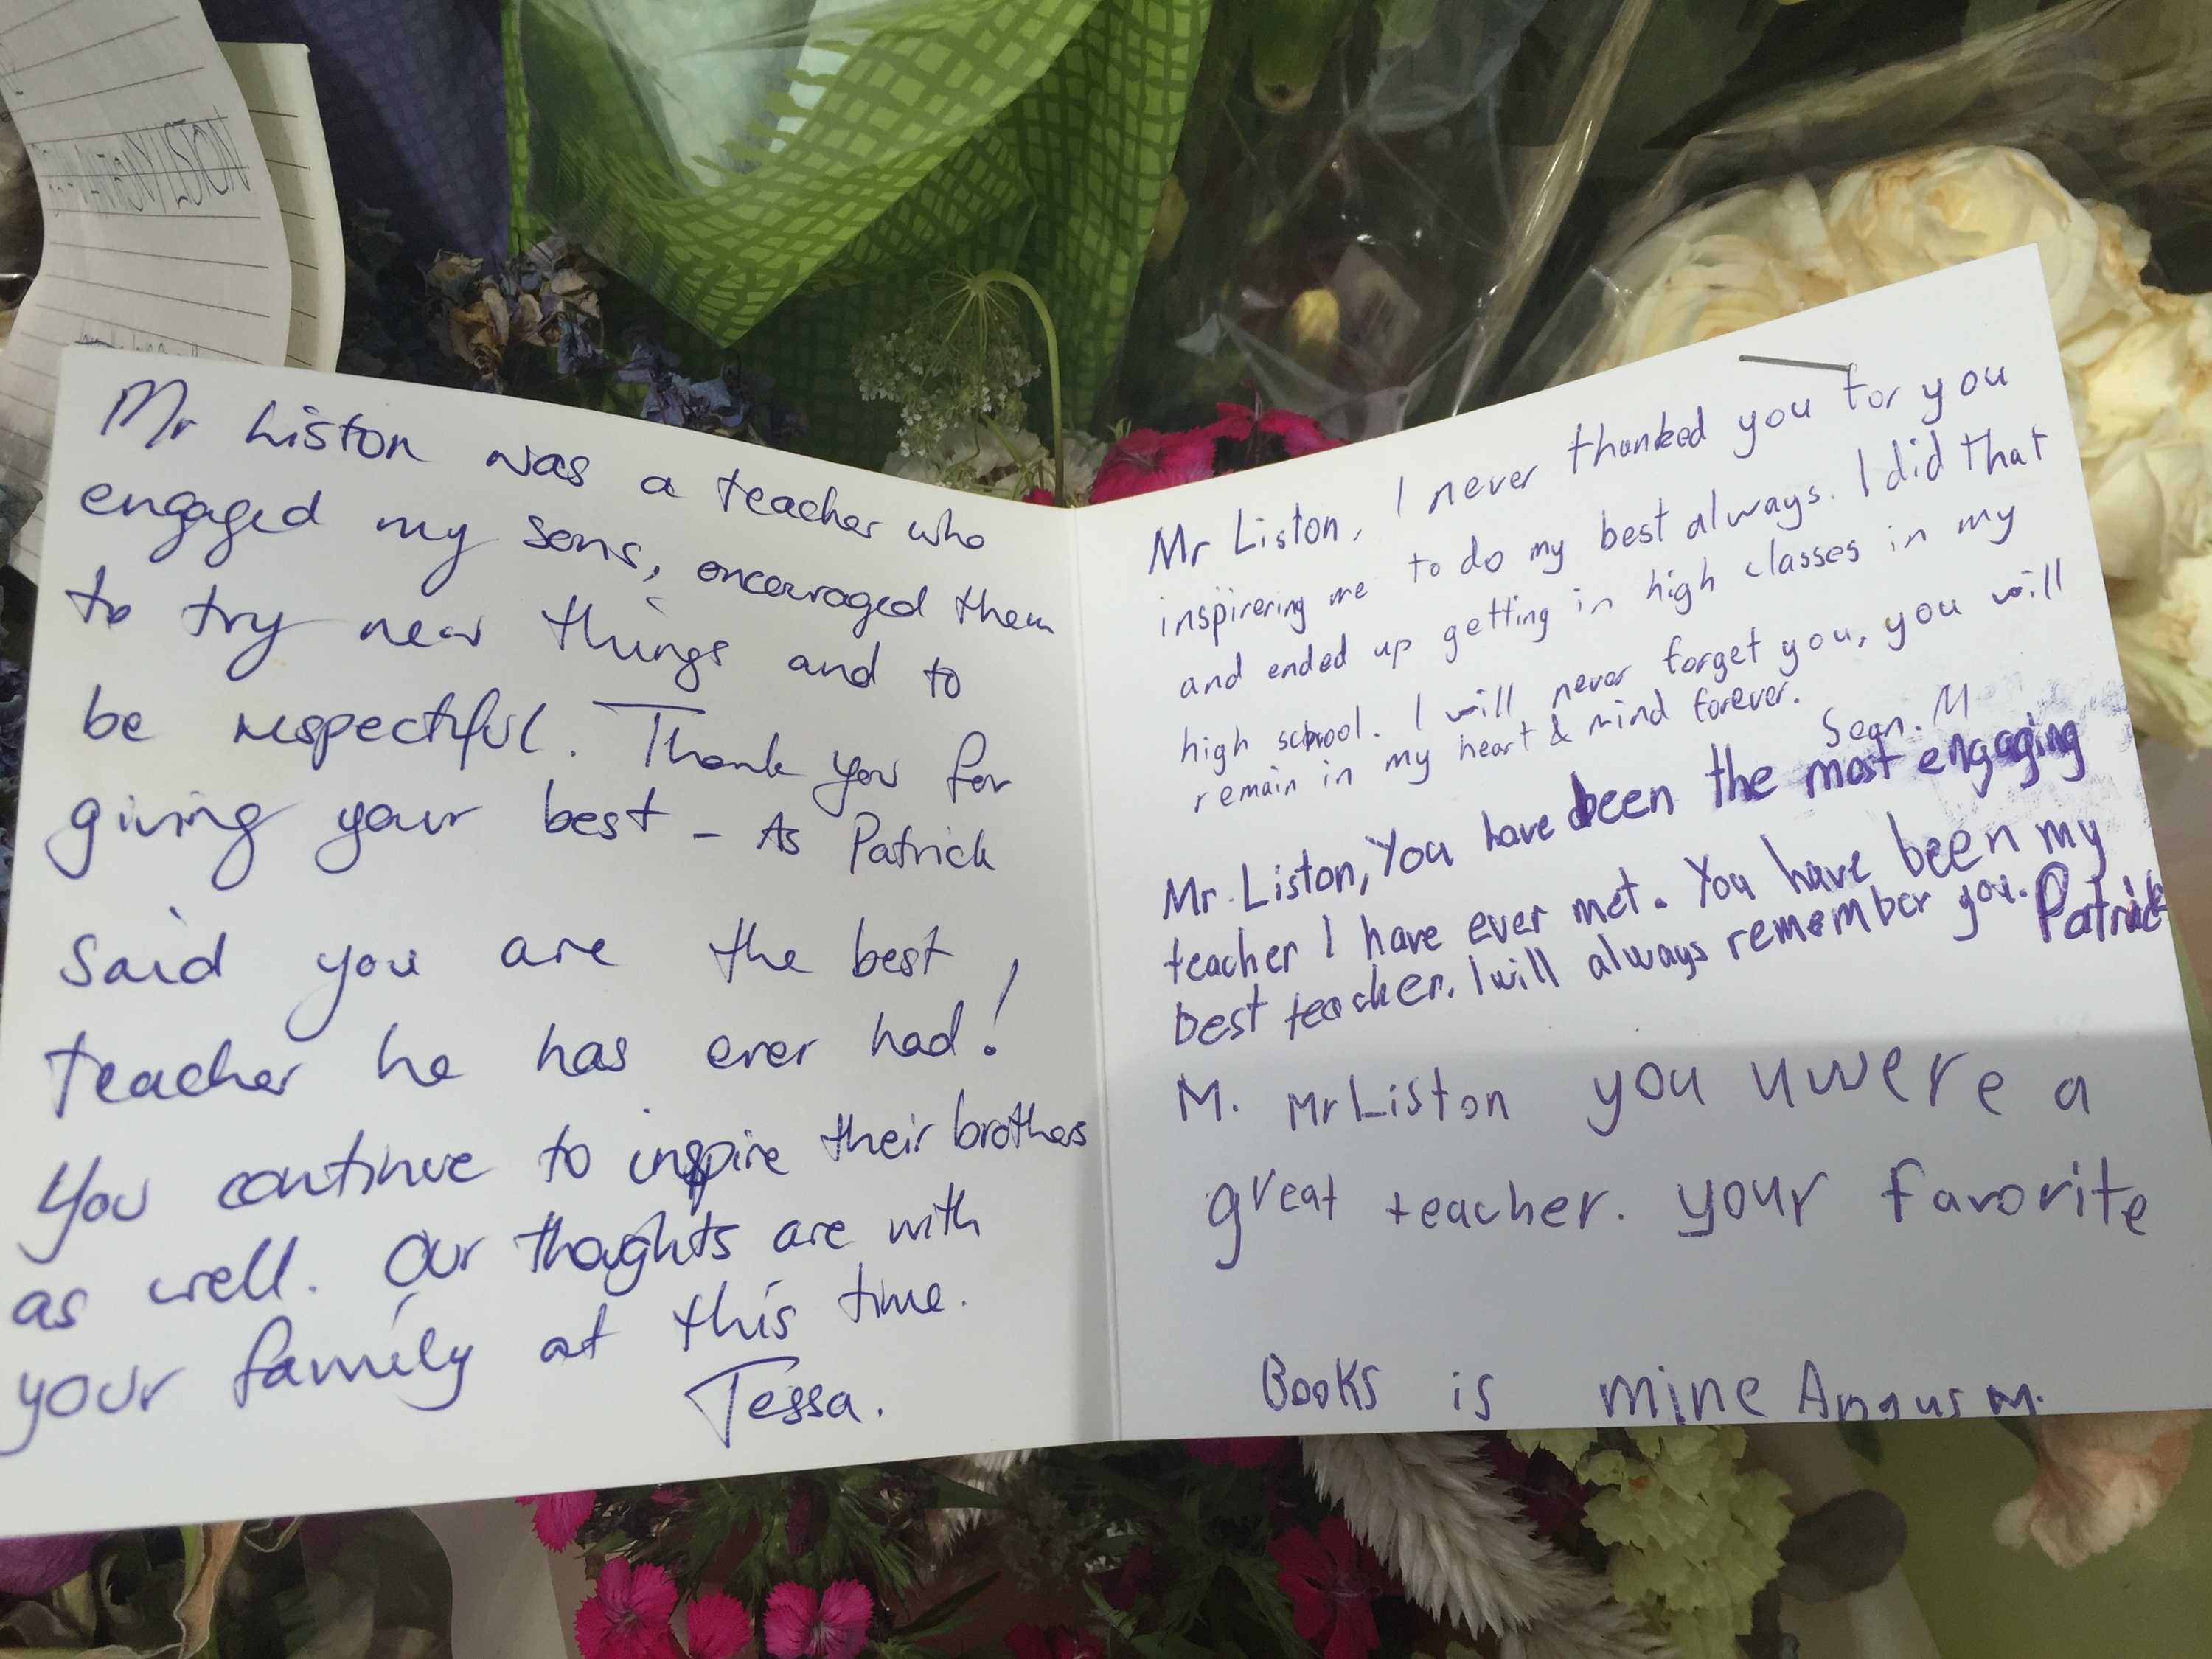 ANTHONY LISTON
Mr Liston was a teacher who
engaged my sons, encouraged them
to try new things and to
be respectful. Thank you for
giving your best - As Patrick
said you are the best
teacher he has ever had!
You continue to inspire their brothers
as well. Our thoughts are with
your family at this time.
Tessa.
Mr Liston, I never thanked you for you
inspirering me to do my best always. I did that
and ended up getting in high classes in my
high school. I will never forget you, you will
remain in my heart & mind forever.
Sean. M
Mr. Liston, You have been the most engaging
teacher I have ever met. You have been my
best teacher. I will always remember you. Patrick
M. Mr Liston you uwere a
great teacher. your favorite
Books is mine Angus M.